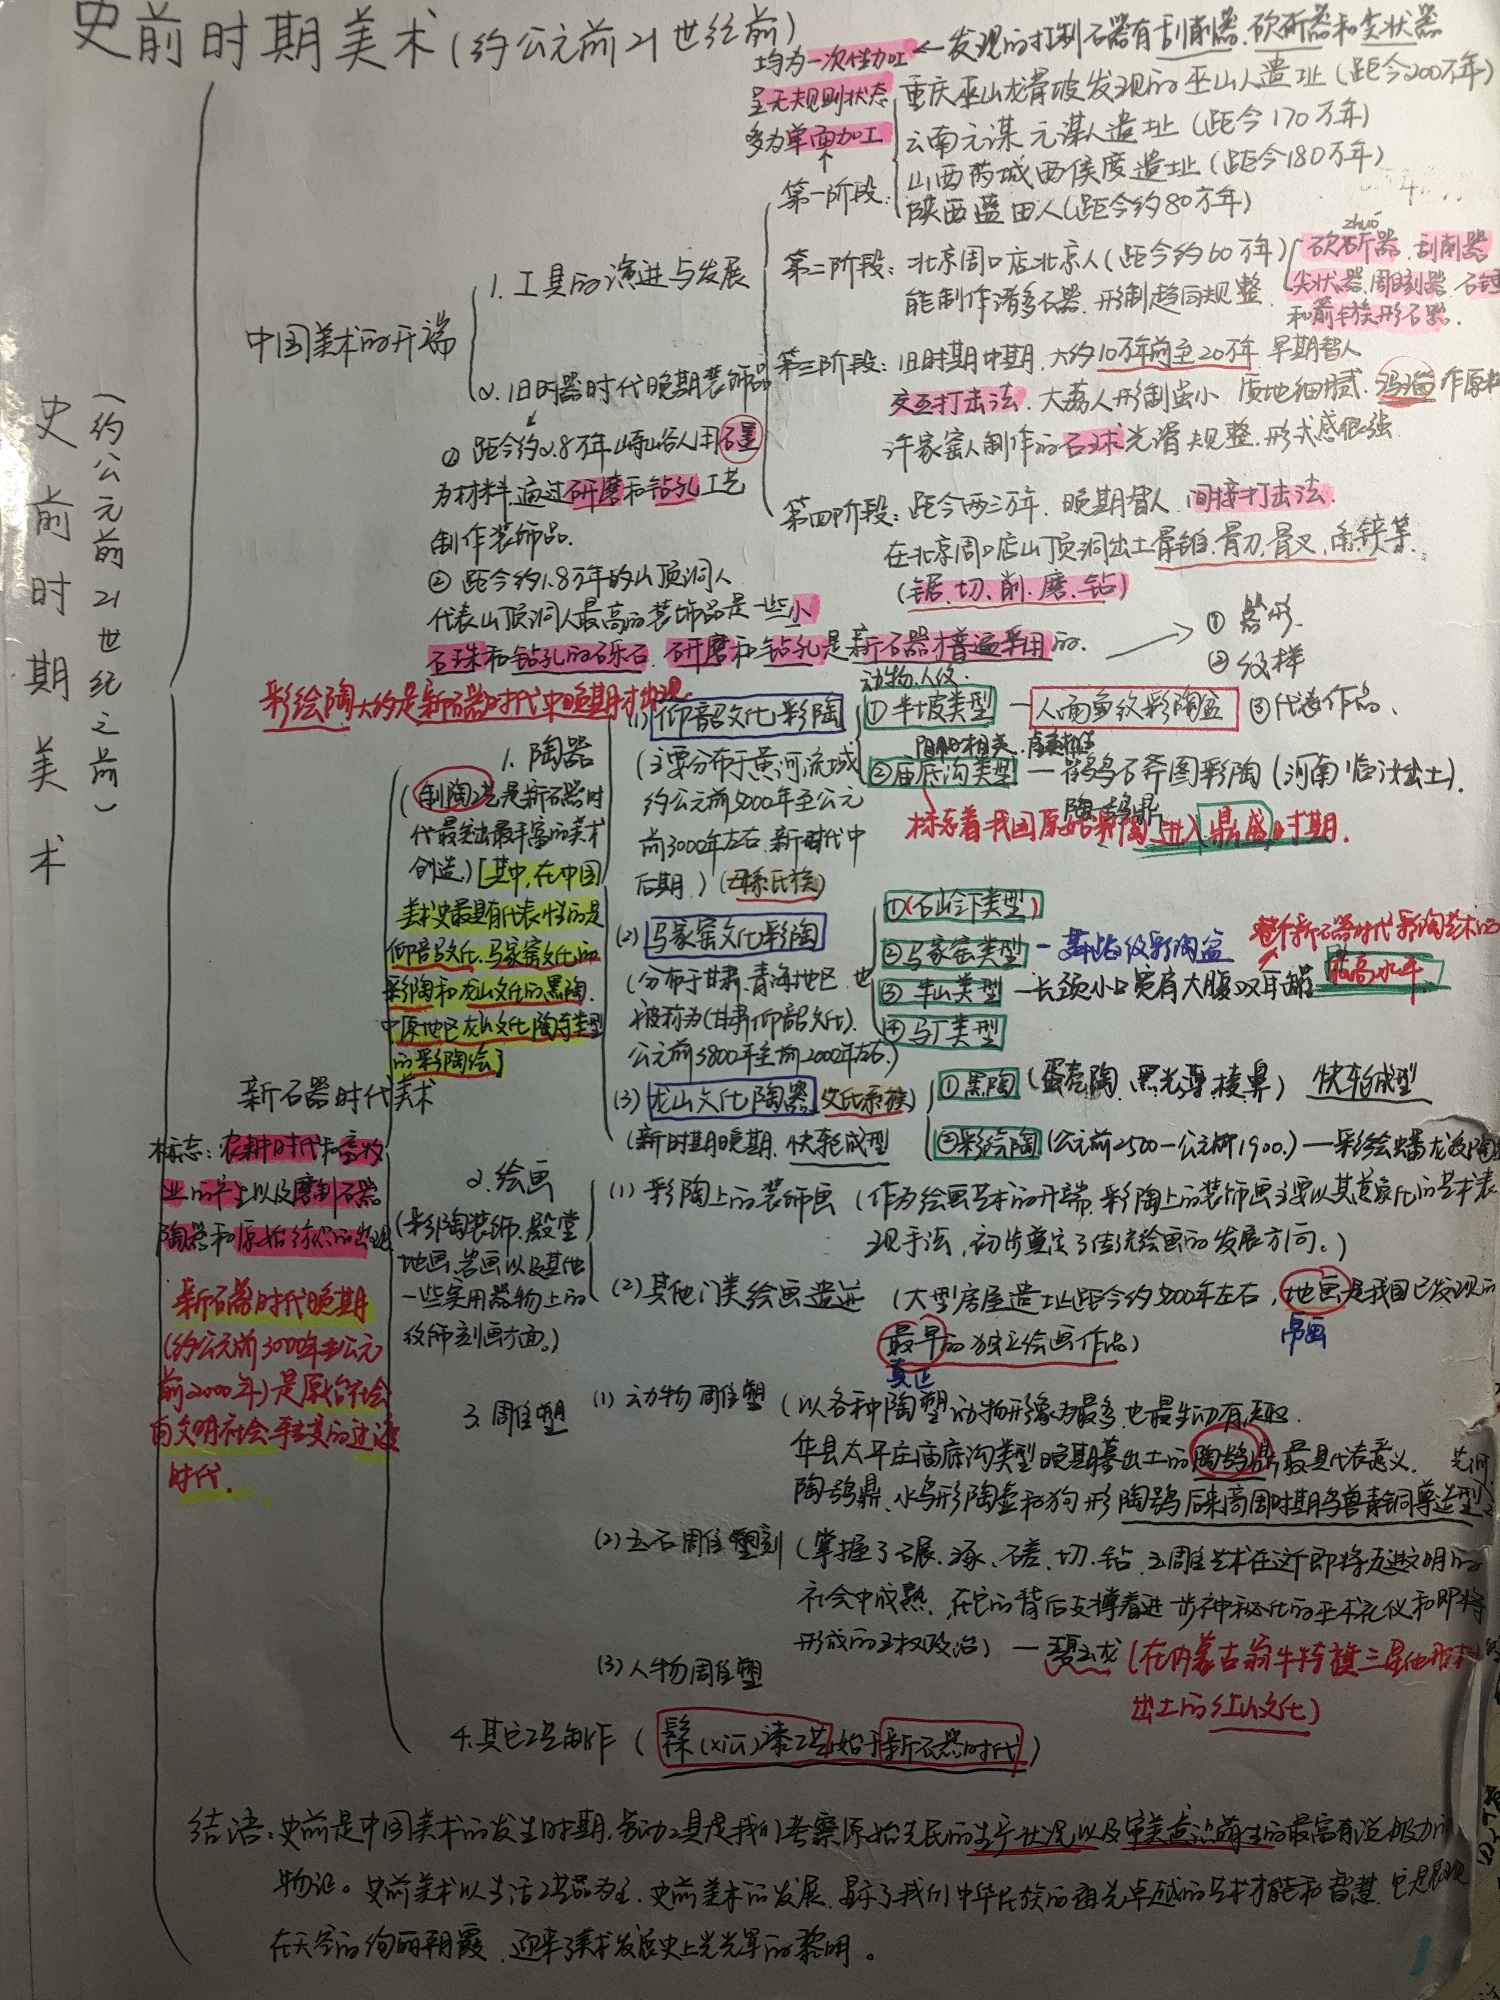 史前时期美术(约公元前21世纪前)
史前时期美术
(约公元前21世纪之前)
中国美术的开端
1.工具的演进与发展
均为一次性加工 ← 发现的打制石器有刮削器.砍斫器和尖状器
呈无规则状态
多为单面加工
第一阶段:
重庆巫山龙骨坡发现的巫山人遗址(距今200万年)
云南元谋 元谋人遗址(距今170万年)
山西芮城西侯度遗址(距今180万年)
陕西蓝田人(距今约80万年)
第二阶段: 北京周口店北京人(距今约60万年)
能制作诸多石器.形制趋同规整.
zhuó
砍斫器.刮削器
尖状器.雕刻器.石锤
和箭镞形石器.
第三阶段: 旧时期中期.大约10万年前至20万年 早期智人
交互打击法.大荔人形制虽小 质地细腻.玛瑙作原料
许家窑人制作的石球光滑规整.形式感很强
第四阶段: 距今两三万年.晚期智人 间接打击法.
在北京周口店山顶洞出土骨锥.骨刀.骨叉.角铲等.
(锯.切.削.磨.钻)
2.旧时器时代晚期装饰品
① 距今约2.8万年峙峪人用石墨
为材料.通过研磨和钻孔工艺
制作装饰品.
② 距今约1.8万年的山顶洞人
代表山顶洞人最高的装饰品是一些小
石珠和钻孔的砾石.研磨和钻孔是新石器才普遍采用的.
① 器形.
② 纹样
③代表作品.
彩绘陶大约是新石器时代中晚期才出现
新石器时代美术
标志: 农耕时代和畜牧
业的产生以及磨制石器
陶器和原始纺织的出现
新石器时代晚期
(约公元前3000年至公元
前2000年)是原始社会
向文明社会转变的过渡
时代.
1.陶器
(制陶工艺是新石器时
代最突出最丰富的美术
创造.)[其中,在中国
美术史最具有代表性的是
仰韶文化.马家窑文化的
彩陶和龙山文化的黑陶.
中原地区龙山文化陶寺类型
的彩陶绘]
(1) 仰韶文化彩陶
(主要分布于黄河流域
约公元前5000年至公元
前3000年左右.新时代中
后期.)(母系氏族)
动物.人纹.
①半坡类型 — 人面鱼纹彩陶盆
②庙底沟类型 — 鹳鸟石斧图彩陶(河南临汝出土).
陶鸮鼎
标志着我国原始彩陶进入鼎盛时期.
(2) 马家窑文化彩陶
(分布于甘肃.青海地区.也
被称为(甘肃仰韶文化).
公元前3800年至前2000年左右.)
①(石岭下类型)
②马家窑类型 — 舞蹈纹彩陶盆
③半山类型 — 长颈小口宽肩大腹双耳罐
④马厂类型
整个新石器时代彩陶艺术的
最高水平
(3) 龙山文化陶器(父氏系族)
(新时期晚期.快轮成型
①黑陶(蛋壳陶.黑光薄棱鼻) 快轮成型
②彩绘陶(公元前2500—公元前1900.)—彩绘蟠龙纹陶
2.绘画
(彩陶装饰.殿堂
地画.岩画以及其他
一些实用器物上的
纹饰刻画方面。)
(1) 彩陶上的装饰画(作为绘画艺术的开端.彩陶上的装饰画主要以其意象化的艺术表
现手法,初步奠定了传统绘画的发展方向。)
(2) 其他门类绘画遗迹 (大型房屋遗址距今约5000年左右,地画是我国已发现的
帛画
最早的独立绘画作品)
真正
3.雕塑
(1) 动物雕塑 (以各种陶塑动物形象为最多.也最生动有趣.
华县太平庄庙底沟类型晚期墓出土的陶鸮鼎最具代表意义.
陶鸮鼎.水鸟形陶壶和狗形陶鬶后来商周时期鸟兽青铜尊造型
(2) 玉石雕塑刻 (掌握了碾.琢.磋.切.钻.玉雕艺术在这个即将走进文明的
社会中成熟.在它的背后支撑着进一步神秘化的巫术礼仪和即将
形成的王权政治)—碧玉龙(在内蒙古翁牛特旗三星他拉村
出土的红山文化)
(3) 人物雕塑
4.其它工艺制作 (髹(xiū)漆工艺始于新石器时代)
结语:史前是中国美术的发生时期.劳动工具是我们考察原始先民的生产状况以及审美意识萌生的最富有说服力的
物证。史前美术以生活工艺品为主.史前美术的发展.显示了我们中华民族的祖先卓越的艺术才能和智慧.它是展现
在天空的绚丽朝霞.迎来了美术发展史上光辉的黎明。